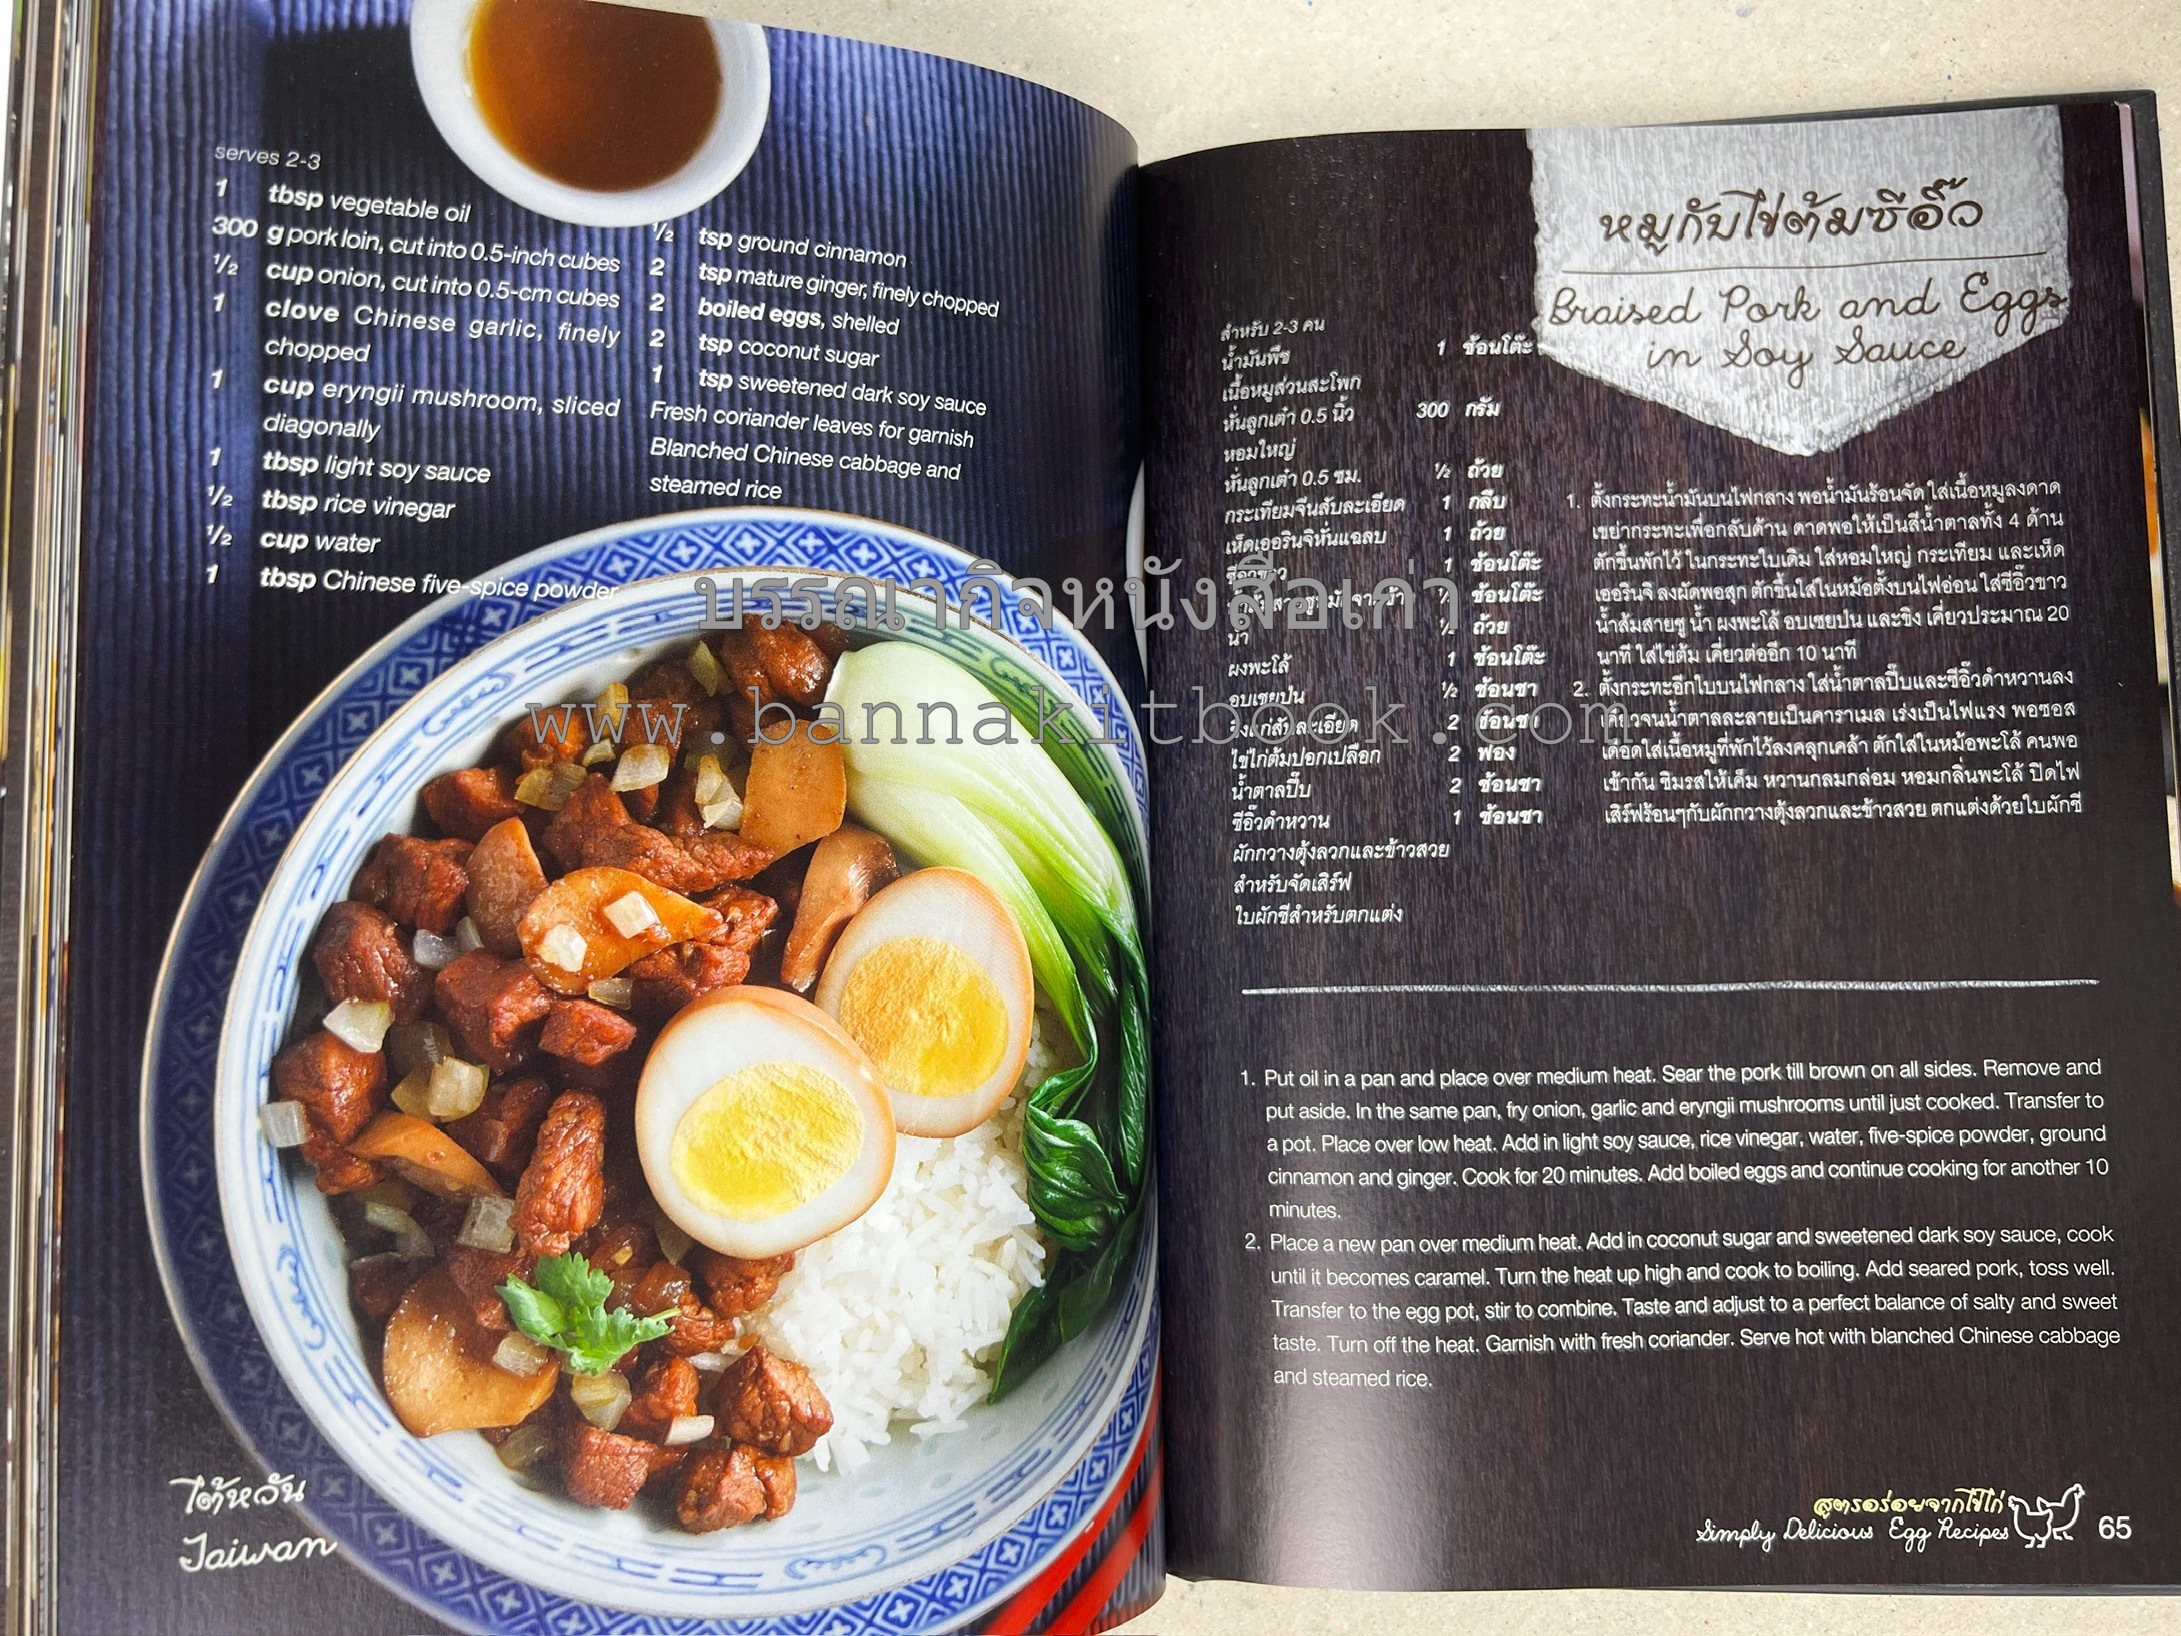 serves 2-3
1 tbsp vegetable oil
300 g pork loin, cut into 0.5-inch cubes
½ cup onion, cut into 0.5-cm cubes
1 clove Chinese garlic, finely
chopped
1 cup eryngii mushroom, sliced
diagonally
1 tbsp light soy sauce
½ tbsp rice vinegar
½ cup water
1 tbsp Chinese five-spice powder
½ tsp ground cinnamon
2 tsp mature ginger, finely chopped
2 boiled eggs, shelled
2 tsp coconut sugar
1 tsp sweetened dark soy sauce
Fresh coriander leaves for garnish
Blanched Chinese cabbage and
steamed rice
ไต้หวัน
Taiwan
บรรณากิจหนังสือเก่า
www.bannakitbook.com
หมูกับไข่ต้มซีอิ๊ว
Braised Pork and Eggs
in Soy Sauce
สำหรับ 2-3 คน
น้ำมันพืช 1 ช้อนโต๊ะ
เนื้อหมูส่วนสะโพก
หั่นลูกเต๋า 0.5 นิ้ว 300 กรัม
หอมใหญ่
หั่นลูกเต๋า 0.5 ซม. ½ ถ้วย
กระเทียมจีนสับละเอียด 1 กลีบ
เห็ดเออรินจิหั่นแฉลบ 1 ถ้วย
ซีอิ๊วขาว 1 ช้อนโต๊ะ
½ ช้อนโต๊ะ
น้ำ ½ ถ้วย
ผงพะโล้ 1 ช้อนโต๊ะ
อบเชยป่น ½ ช้อนชา
ขิงแก่สับละเอียด 2 ช้อนชา
ไข่ไก่ต้มปอกเปลือก 2 ฟอง
น้ำตาลปี๊บ 2 ช้อนชา
ซีอิ๊วดำหวาน 1 ช้อนชา
ผักกวางตุ้งลวกและข้าวสวย
สำหรับจัดเสิร์ฟ
ใบผักชีสำหรับตกแต่ง
1. ตั้งกระทะน้ำมันบนไฟกลาง พอน้ำมันร้อนจัด ใส่เนื้อหมูลงดาด
เขย่ากระทะเพื่อกลับด้าน ดาดพอให้เป็นสีน้ำตาลทั้ง 4 ด้าน
ตักขึ้นพักไว้ ในกระทะใบเดิม ใส่หอมใหญ่ กระเทียม และเห็ด
เออรินจิ ลงผัดพอสุก ตักขึ้นใส่ในหม้อตั้งบนไฟอ่อน ใส่ซีอิ๊วขาว
น้ำส้มสายชู น้ำ ผงพะโล้ อบเชยป่น และขิง เคี่ยวประมาณ 20
นาที ใส่ไข่ต้ม เคี่ยวต่ออีก 10 นาที
2. ตั้งกระทะอีกใบบนไฟกลาง ใส่น้ำตาลปี๊บและซีอิ๊วดำหวานลง
เคี่ยวจนน้ำตาลละลายเป็นคาราเมล เร่งเป็นไฟแรง พอซอส
เดือดใส่เนื้อหมูที่พักไว้ลงคลุกเคล้า ตักใส่ในหม้อพะโล้ คนพอ
เข้ากัน ชิมรสให้เค็ม หวานกลมกล่อม หอมกลิ่นพะโล้ ปิดไฟ
เสิร์ฟร้อนๆกับผักกวางตุ้งลวกและข้าวสวย ตกแต่งด้วยใบผักชี
1. Put oil in a pan and place over medium heat. Sear the pork till brown on all sides. Remove and
put aside. In the same pan, fry onion, garlic and eryngii mushrooms until just cooked. Transfer to
a pot. Place over low heat. Add in light soy sauce, rice vinegar, water, five-spice powder, ground
cinnamon and ginger. Cook for 20 minutes. Add boiled eggs and continue cooking for another 10
minutes.
2. Place a new pan over medium heat. Add in coconut sugar and sweetened dark soy sauce, cook
until it becomes caramel. Turn the heat up high and cook to boiling. Add seared pork, toss well.
Transfer to the egg pot, stir to combine. Taste and adjust to a perfect balance of salty and sweet
taste. Turn off the heat. Garnish with fresh coriander. Serve hot with blanched Chinese cabbage
and steamed rice.
สูตรอร่อยจากไข่ไก่
Simply Delicious Egg Recipes 65